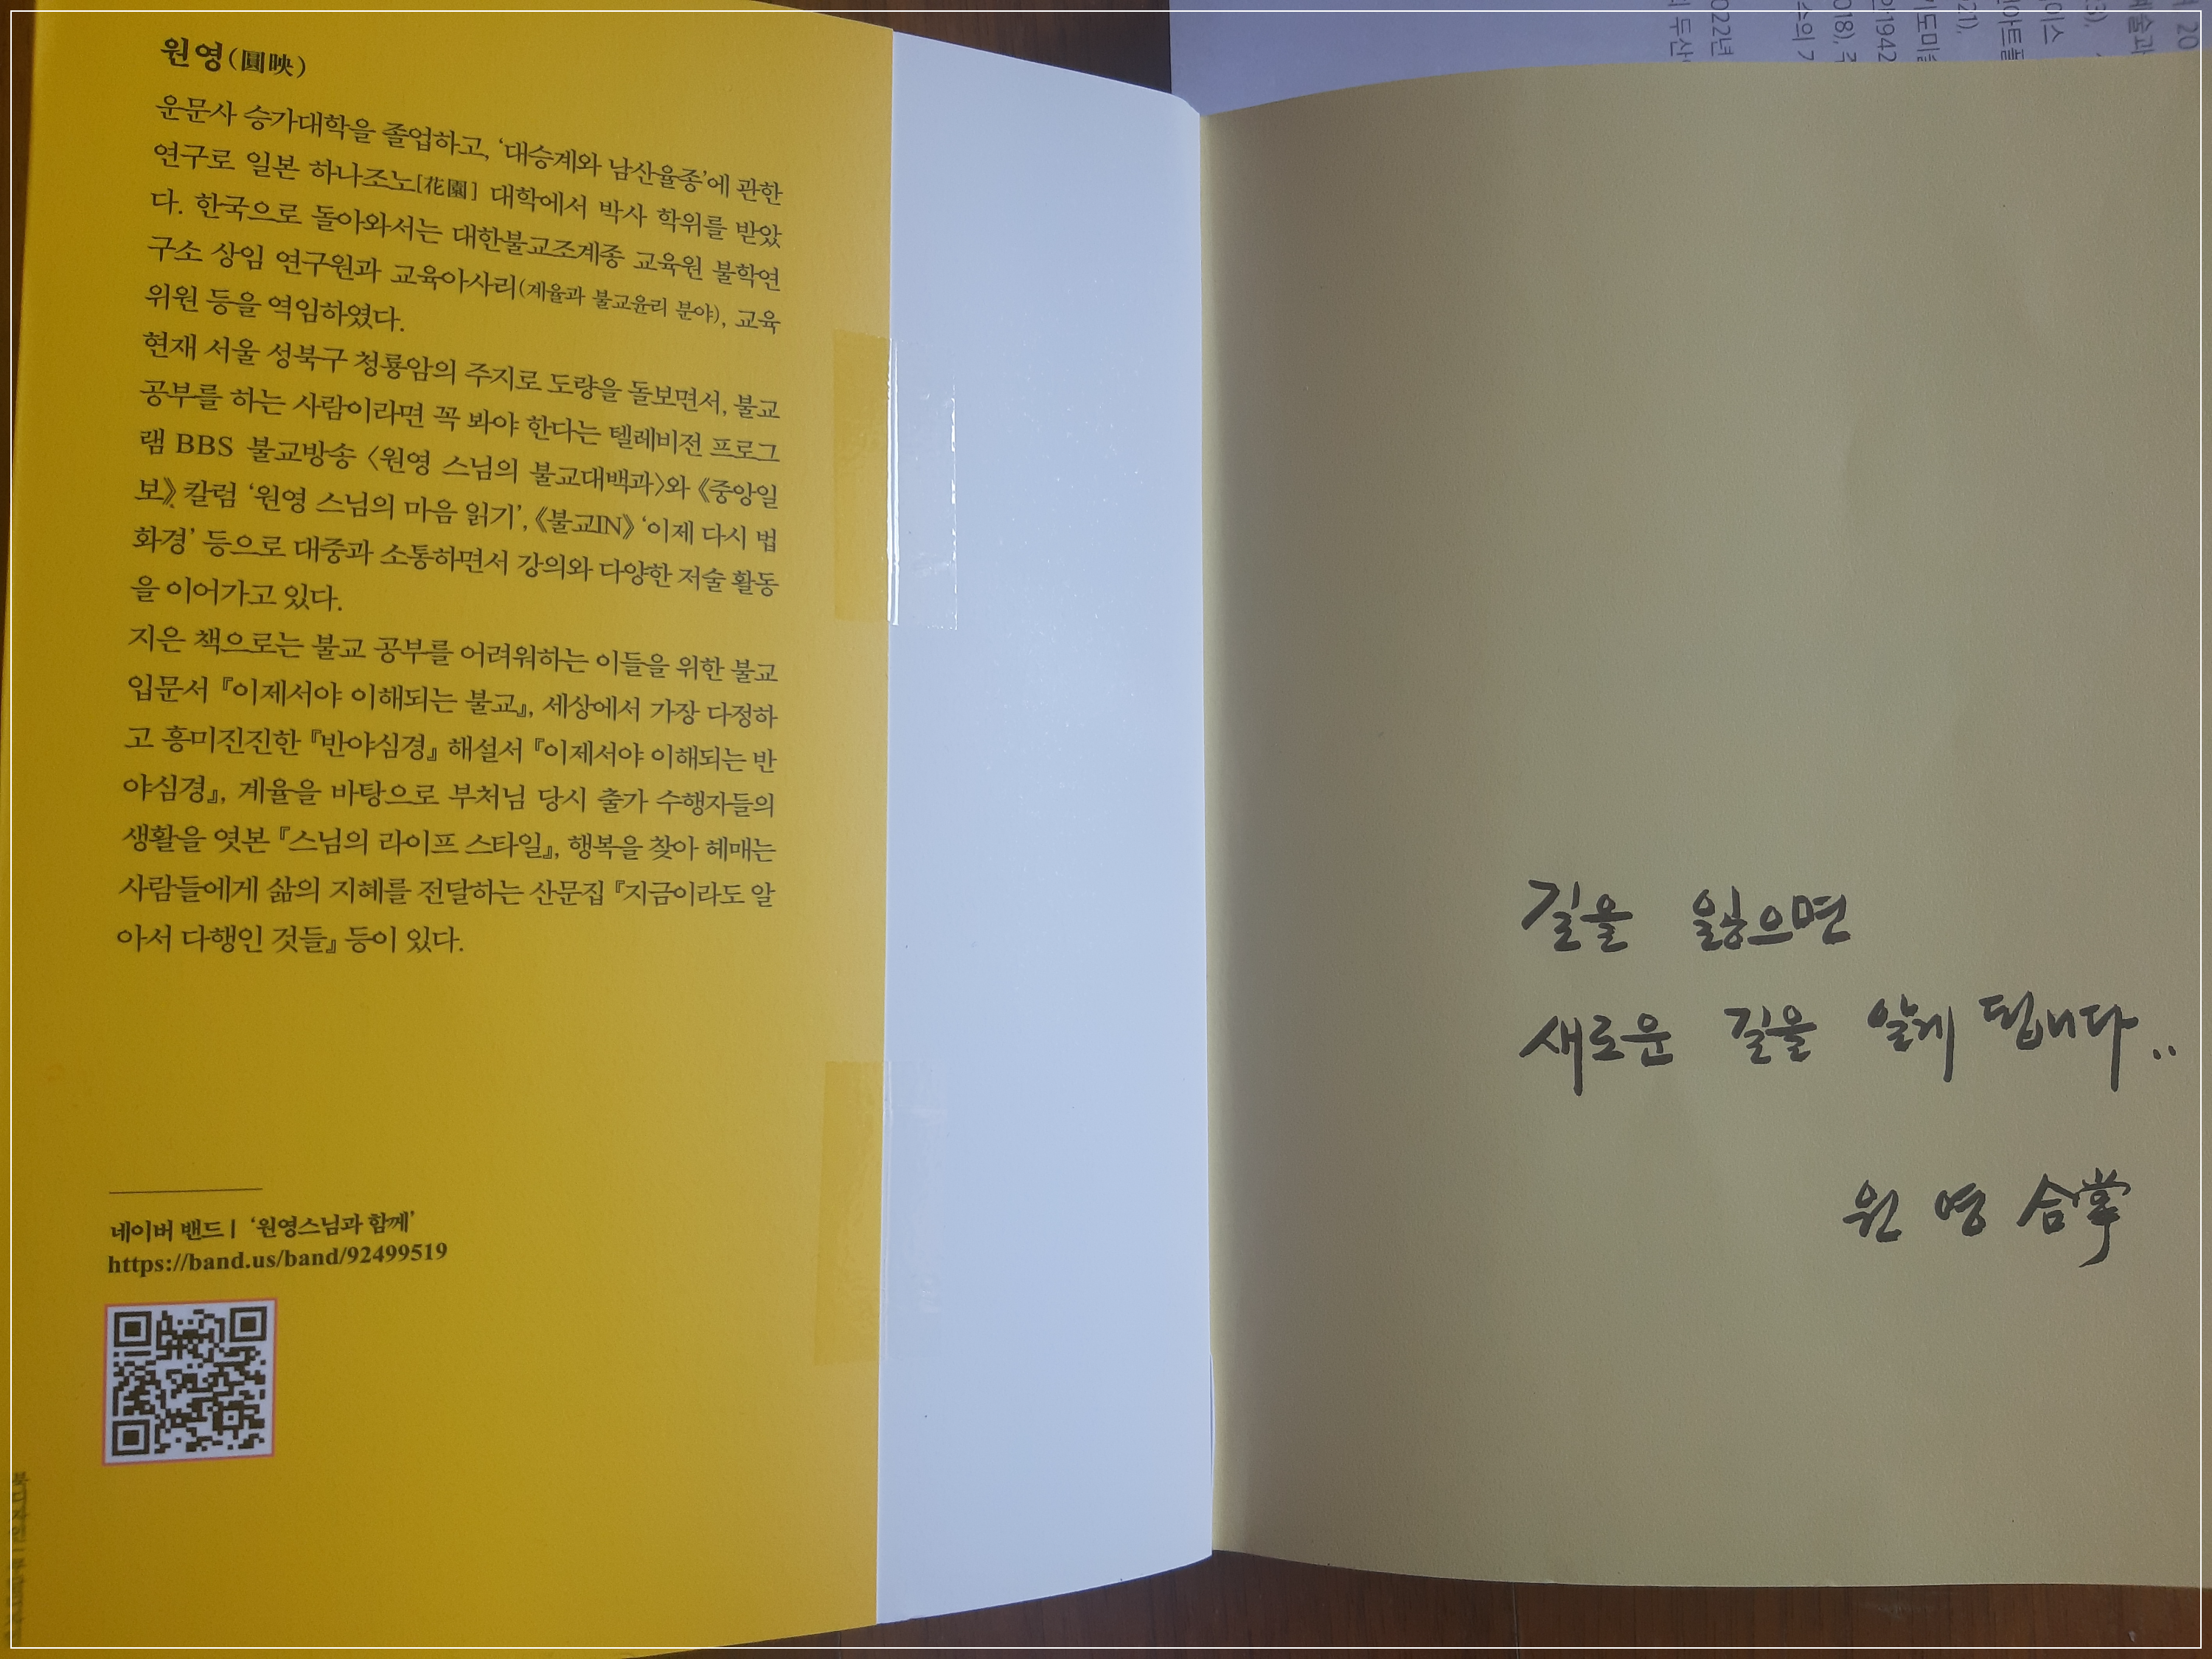 원영(圓映)
운문사 승가대학을 졸업하고, ‘대승계와 남산율종’에 관한
연구로 일본 하나조노[花園] 대학에서 박사 학위를 받았
다. 한국으로 돌아와서는 대한불교조계종 교육원 불학연
구소 상임 연구원과 교육아사리(계율과 불교윤리 분야), 교육
위원 등을 역임하였다.
현재 서울 성북구 청룡암의 주지로 도량을 돌보면서, 불교
공부를 하는 사람이라면 꼭 봐야 한다는 텔레비전 프로그
램 BBS 불교방송 〈원영 스님의 불교대백과〉와 《중앙일
보》 칼럼 ‘원영 스님의 마음 읽기’, 《불교IN》 ‘이제 다시 법
화경’ 등으로 대중과 소통하면서 강의와 다양한 저술 활동
을 이어가고 있다.
지은 책으로는 불교 공부를 어려워하는 이들을 위한 불교
입문서 『이제서야 이해되는 불교』, 세상에서 가장 다정하
고 흥미진진한 『반야심경』 해설서 『이제서야 이해되는 반
야심경』, 계율을 바탕으로 부처님 당시 출가 수행자들의
생활을 엿본 『스님의 라이프 스타일』, 행복을 찾아 헤매는
사람들에게 삶의 지혜를 전달하는 산문집 『지금이라도 알
아서 다행인 것들』 등이 있다.
네이버 밴드 | ‘원영스님과 함께’
https://band.us/band/92499519
북디자인
길을 잃으면
새로운 길을 알게 됩니다..
원영 合掌